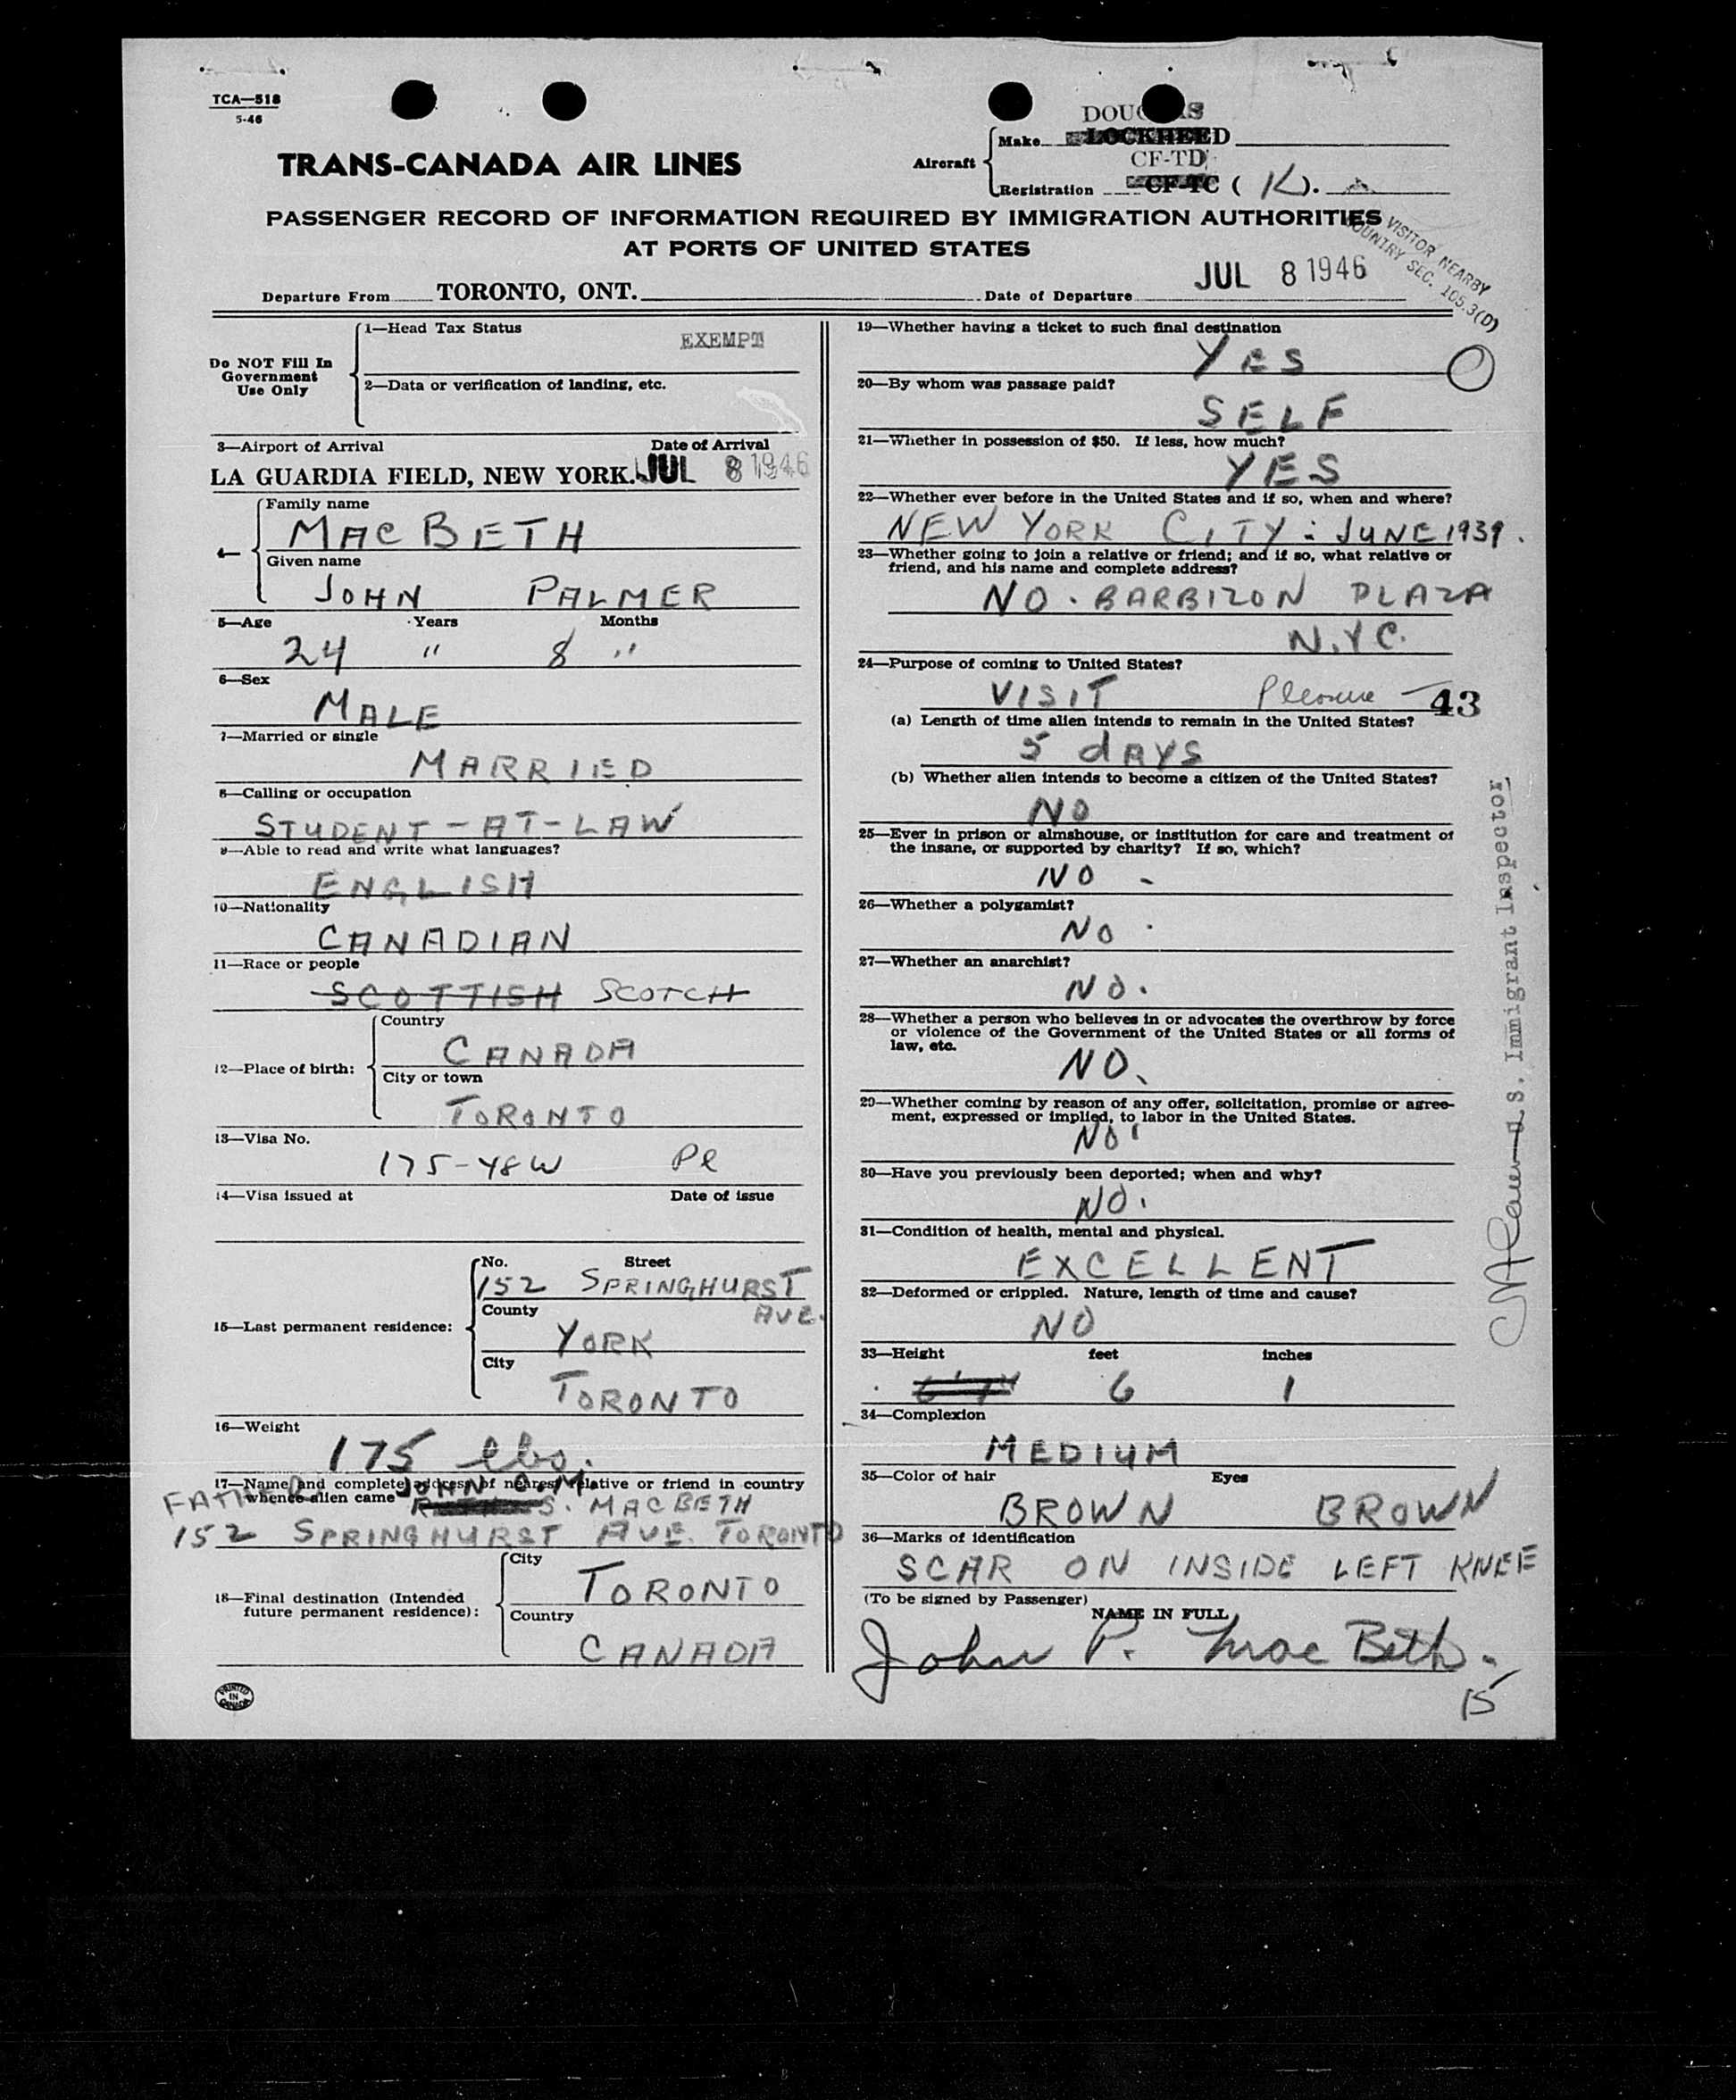 TCA—518
5-46
DOUGLAS
Make LOCKHEED
TRANS-CANADA AIR LINES
Aircraft
CF-TD
Registration CF-TC ( K ).
PASSENGER RECORD OF INFORMATION REQUIRED BY IMMIGRATION AUTHORITIES
AT PORTS OF UNITED STATES
VISITOR NEARBY
COUNTRY SEC. 105.3(D)
Departure From TORONTO, ONT. Date of Departure JUL 8 1946
Do NOT Fill In
Government
Use Only
1—Head Tax Status EXEMPT
2—Data or verification of landing, etc.
3—Airport of Arrival Date of Arrival
LA GUARDIA FIELD, NEW YORK. JUL 8 1946
4—
Family name
MAC BETH
Given name
JOHN PALMER
5—Age Years Months
24 " 8 "
6—Sex
MALE
7—Married or single
MARRIED
8—Calling or occupation
STUDENT-AT-LAW
9—Able to read and write what languages?
ENGLISH
10—Nationality
CANADIAN
11—Race or people
SCOTTISH SCOTCH
12—Place of birth:
Country
CANADA
City or town
TORONTO
13—Visa No.
175-48W Pl
14—Visa issued at Date of issue
15—Last permanent residence:
No. Street
152 SPRINGHURST
AVE.
County
YORK
City
TORONTO
16—Weight
175 lbs.
17—Name and complete address of nearest relative or friend in country
whence alien came
FATHER JOHN C.M.
S. MACBETH
152 SPRINGHURST AVE. TORONTO
18—Final destination (Intended
future permanent residence):
City
TORONTO
Country
CANADA
PRINTED
IN
CANADA
19—Whether having a ticket to such final destination
YES
20—By whom was passage paid?
SELF
21—Whether in possession of $50. If less, how much?
YES
22—Whether ever before in the United States and if so, when and where?
NEW YORK CITY: JUNE 1939.
23—Whether going to join a relative or friend; and if so, what relative or
friend, and his name and complete address?
NO. BARBIZON PLAZA
N.Y.C.
24—Purpose of coming to United States?
VISIT Pleasure 43
(a) Length of time alien intends to remain in the United States?
5 dAYS
(b) Whether alien intends to become a citizen of the United States?
NO
25—Ever in prison or almshouse, or institution for care and treatment of
the insane, or supported by charity? If so, which?
NO -
26—Whether a polygamist?
NO.
27—Whether an anarchist?
NO.
28—Whether a person who believes in or advocates the overthrow by force
or violence of the Government of the United States or all forms of
law, etc.
NO.
29—Whether coming by reason of any offer, solicitation, promise or agree-
ment, expressed or implied, to labor in the United States.
NO
30—Have you previously been deported; when and why?
NO.
31—Condition of health, mental and physical.
EXCELLENT
32—Deformed or crippled. Nature, length of time and cause?
NO
33—Height feet inches
6 1
34—Complexion
MEDIUM
35—Color of hair Eyes
BROWN BROWN
36—Marks of identification
SCAR ON INSIDE LEFT KNEE
(To be signed by Passenger)
NAME IN FULL
John P. MacBeth.
15
U.S. Immigrant Inspector